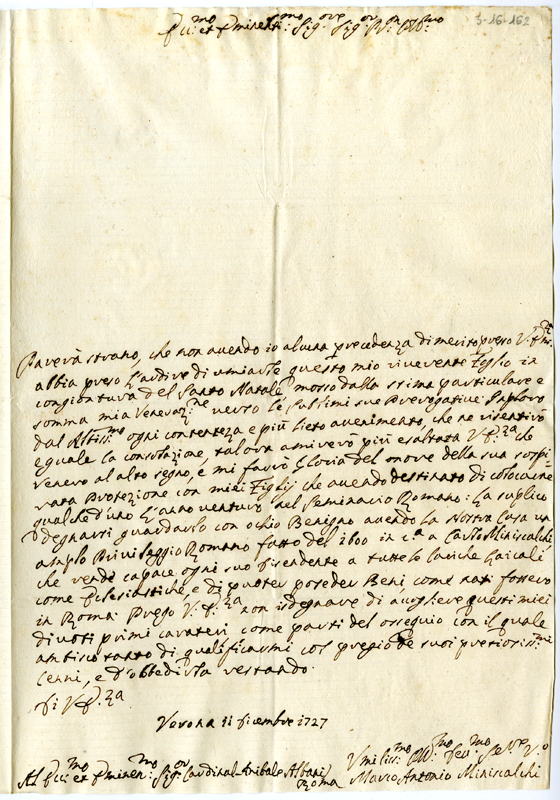 3-16-162
Em:mo et Eminenti:mo Sig:ore Sig:or P:n Col:mo
Parerà strano, che non avendo io alcuna precedenza di merito presso V. Em:za
abbia preso l'ardire di umiarle questo mio riverente foglio in
congiontura del Santo Natale mosso dalla stima particulare e
somma mia veneraz:ne verso le sublimi sue Prerogative. Imploro
dal Altiss:mo ogni contentezza e più lieto avenimento, che ne risentirò
eguale la consolazione, talora amirerò più esaltata V. E.za che
venero al alto segno, e mi farrò Gloria del onore della sua sospi-
rata Protezione con miei Figlij che avendo destinato di colocarne
qualche d'uno l'anno venturo nel Seminario Romano: La suplico
degnarsi guardarlo con ochio Benigno avendo la Nostra Casa un
amplo Privilaggio Romano fatto del 1600 in c:a a Carlo Miniscalchi
che rende capace ogni suo disendente a tutte le cariche Laicali
come Eclesiastiche e di poter posseder Beni, come nati fossero
in Roma. Prego V. E.za non isdegnare di accogliere questi miei
divoti primi carateri come parti del ossequio con il quale
ambisco tanto di qualificarmi col pregio de suoi pretiosiss:mi
cenni, e d'obbedirla restando.
Di V. E.za
Verona 11 Dicembre 1727
Al Em:mo et Eminen:mo Sig:or Cardinal Anibale Albani
Roma
Umiliss:mo Div:mo Dev:mo Se:re V:o
Marco Antonio Miniscalchi